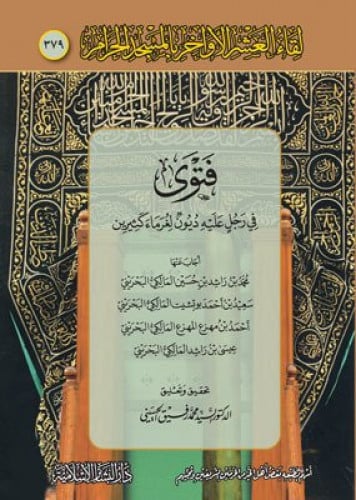 لقاء العشر الأواخر بالمسجد الحرام
٣٧٩
فَتْوَى
فِي رَجُلٍ عَلَيْهِ دُيُونٌ لِغُرَمَاءَ كَثِيرِين
أجاب عنها
محمد بن راشد بن حسين المالكي البحريني
سعيد بن أحمد بوبشيت المالكي البحريني
أحمد بن مهزع المهزع المالكي البحريني
عيسى بن راشد المالكي البحريني
تحقيق وتعليق
الدكتور سيد محمد رفيق الحسيني
أسهم بطبعه بعض أهل الخير من الحرمين الشريفين ومحبيهم
دار البشائر الإسلامية